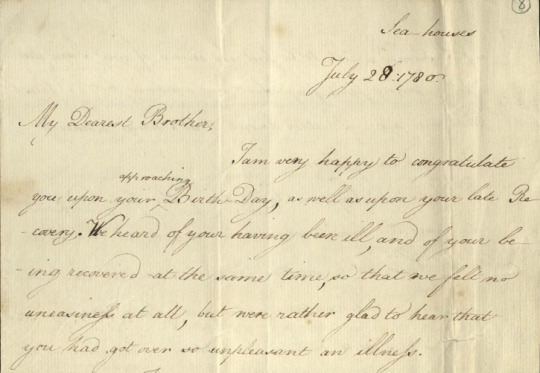 8
Sea houses
July 28 1780.
My Dearest Brother,
I am very happy to congratulate
approaching
you upon your Birth-Day, as well as upon your late Re
-covery. We heard of your having been ill, and of your be
-ing recovered at the same time, so that we felt no
uneasiness at all, but were rather glad to hear that
you had got over so unpleasant an illness.